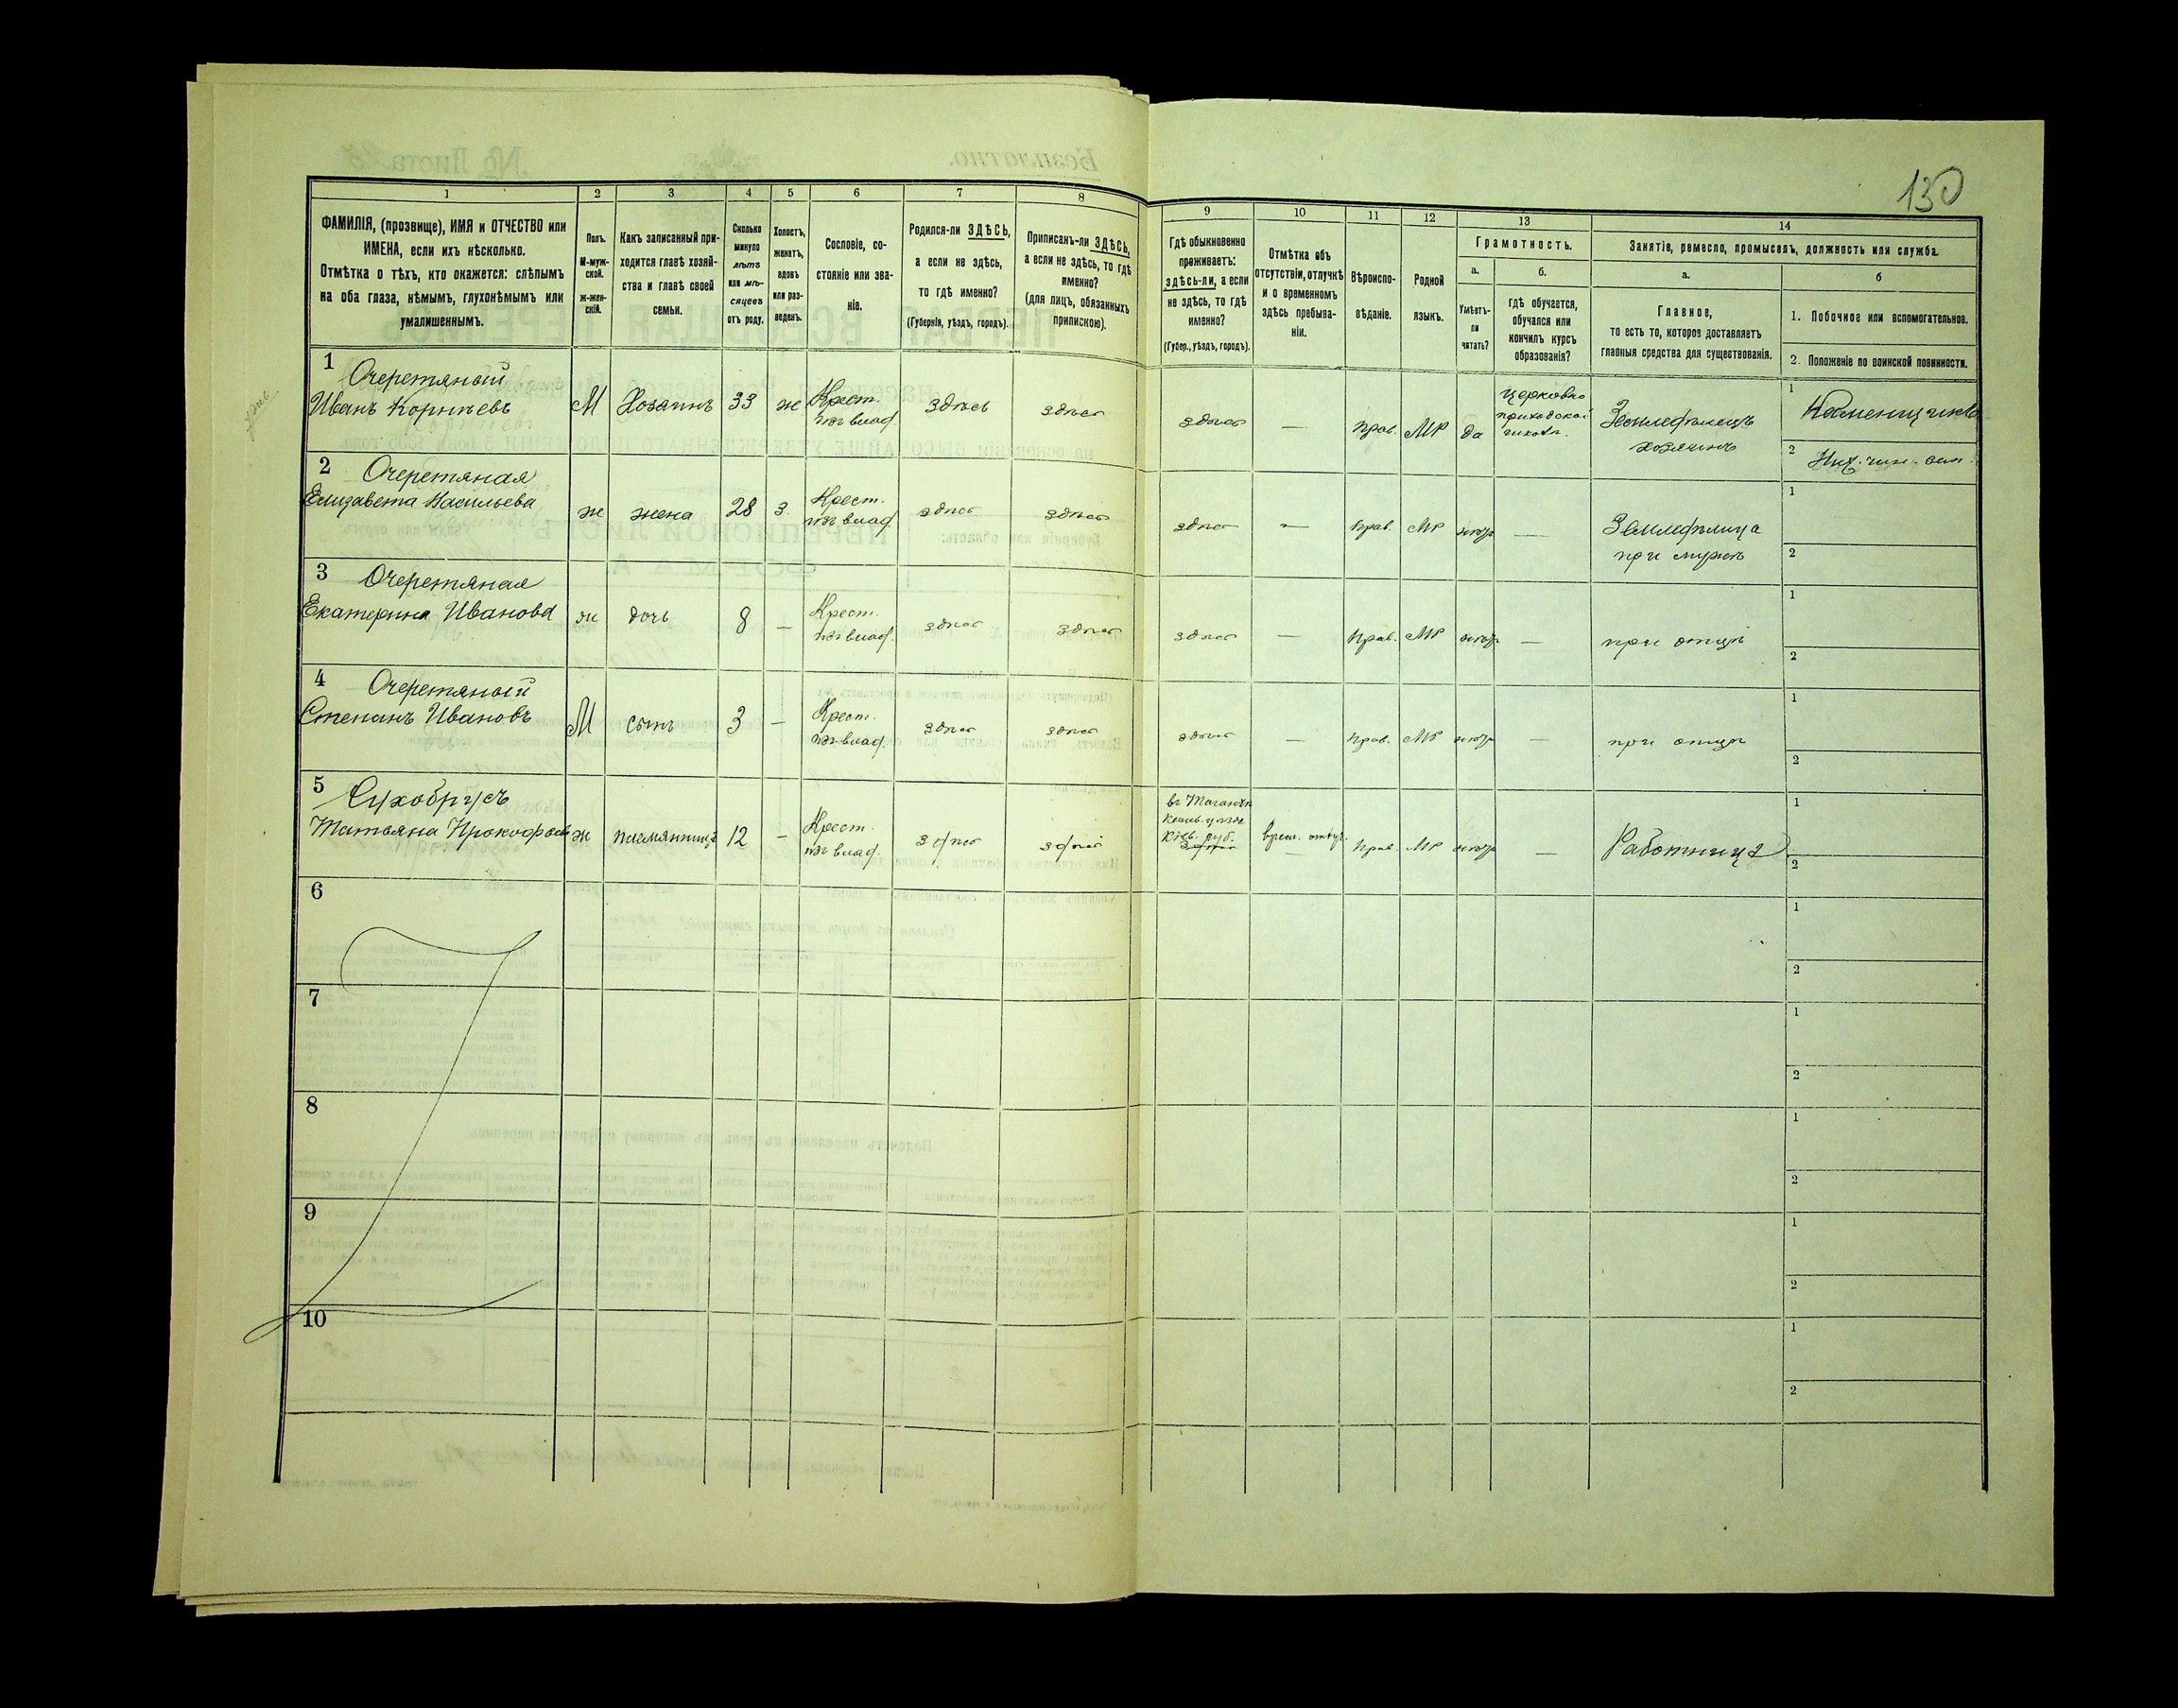 130
1
2
3
4
5
6
7
8
9
10
11
12
13
14
ФАМИЛІЯ, (прозвище), ИМЯ и ОТЧЕСТВО или
ИМЕНА, если ихъ нѣсколько.
Отмѣтка о тѣхъ, кто окажется: слѣпымъ
на оба глаза, нѣмымъ, глухонѣмымъ или
умалишеннымъ.
Полъ.
М-муж-
ской.
ж-жен-
скій.
Какъ записанный при-
ходится главѣ хозяй-
ства и главѣ своей
семьи.
Сколько
минуло
лѣтъ
или мѣ-
сяцевъ
отъ роду.
Холостъ,
женатъ,
вдовъ
или раз-
веденъ.
Сословіе, со-
стояніе или зва-
ніе.
Родился-ли ЗДѢСЬ,
а если не здѣсь,
то гдѣ именно?
(Губернія, уѣздъ, городъ).
Приписанъ-ли ЗДѢСЬ,
а если не здѣсь, то гдѣ
именно?
(для лицъ, обязанныхъ
припискою).
Гдѣ обыкновенно
проживаетъ:
здѣсь-ли, а если
не здѣсь, то гдѣ
именно?
(Губер., уѣздъ, городъ).
Отмѣтка объ
отсутствіи, отлучкѣ
и о временномъ
здѣсь пребыва-
ніи.
Вѣроиспо-
вѣданіе.
Родной
языкъ.
Грамотность.
а.
Умѣетъ-
ли
читать?
б.
гдѣ обучается,
обучался или
кончилъ курсъ
образованія?
Занятіе, ремесло, промыселъ, должность или служба.
а.
Главное,
то есть то, которое доставляетъ
главныя средства для существованія.
б
1. Побочное или вспомогательное.
2. Положеніе по воинской повинности.
1
Очеретяный
Иванъ Корнѣевъ
М
Хозяинъ
33
ж
Крест.
изъ влад.
здѣсь
здѣсь
здѣсь
—
Прав.
МР
да
Церковно
приходской
Земледѣлецъ
хозяинъ
1
2
2
Очеретяная
Елизавета Васильева
ж
жена
28
з.
Крест.
изъ влад.
здѣсь
здѣсь
здѣсь
—
Прав.
МР
—
Земледѣлица
при мужѣ
1
2
3
Очеретяная
Екатерина Иванова
ж
дочь
8
—
Крест.
изъ влад.
здѣсь
здѣсь
здѣсь
—
Прав.
МР
—
при отцѣ
1
2
4
Очеретяный
Степанъ Ивановъ
М
сынъ
3
—
Крест.
изъ влад.
здѣсь
здѣсь
здѣсь
—
Прав.
МР
—
при отцѣ
1
2
5
Сухобрусъ
Татьяна Прокофьева
ж
племянница
12
—
Крест.
изъ влад.
здѣсь
здѣсь
Кіев. губ.
здѣсь
врем. отлуч.
—
Прав.
МР
—
Работница
1
2
6
1
2
7
1
2
8
1
2
9
1
2
10
1
2